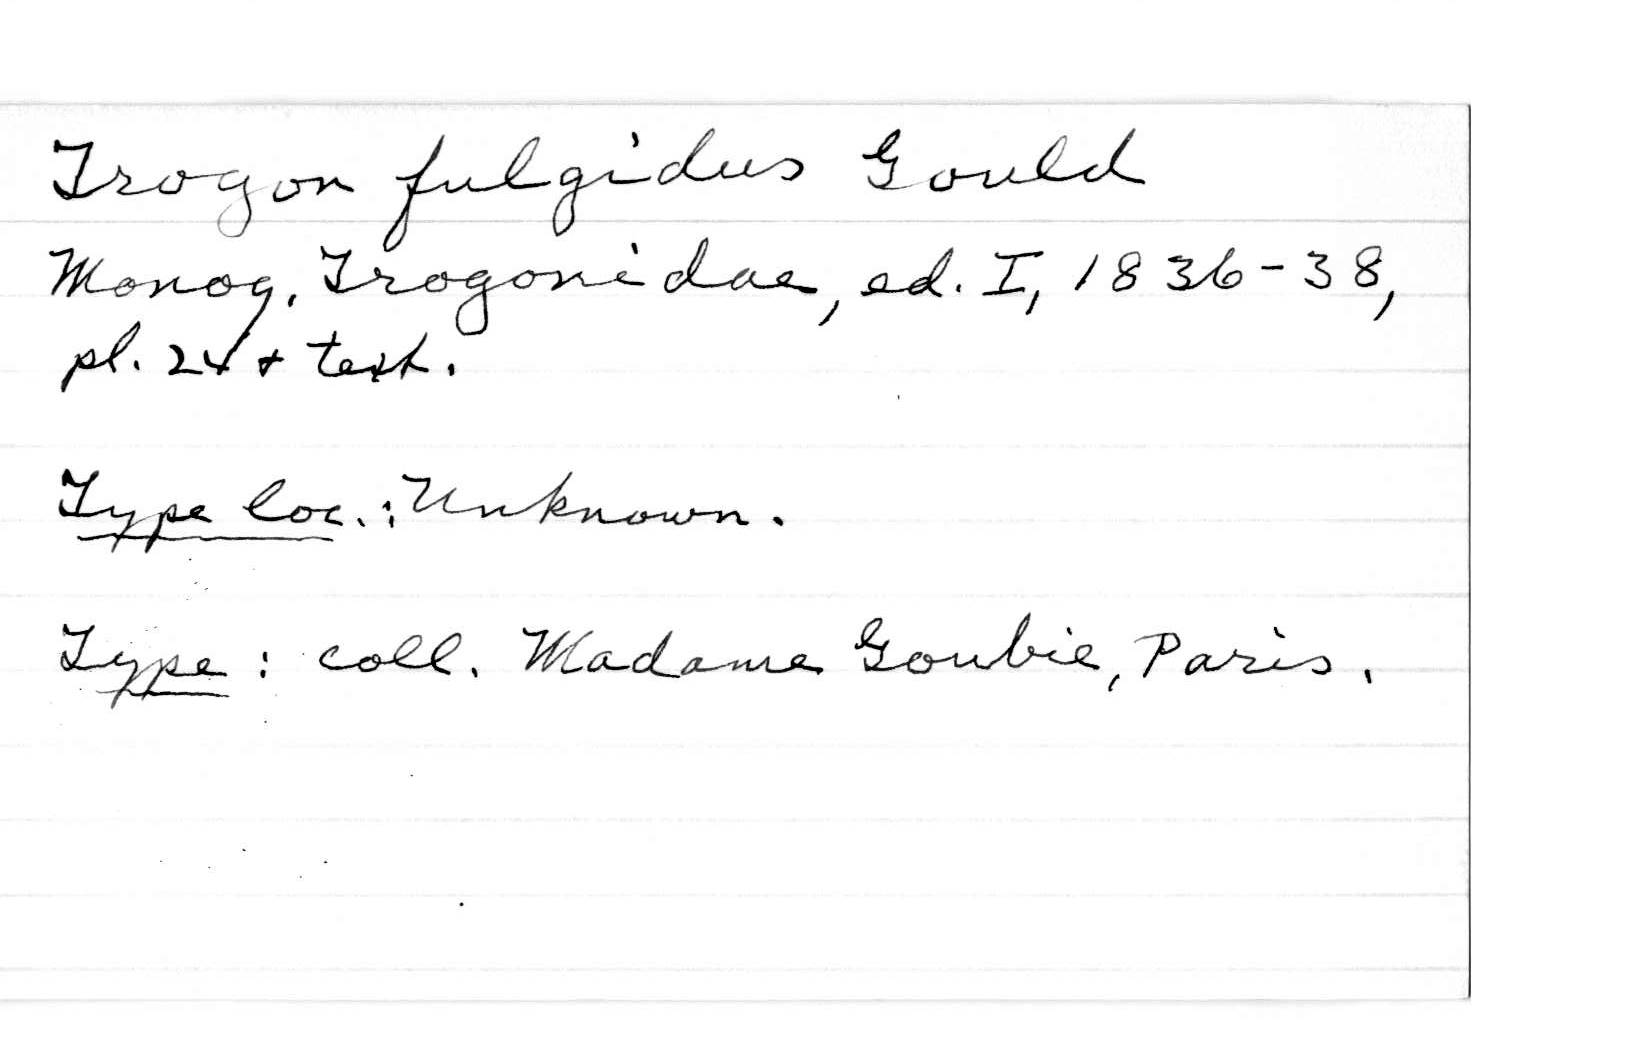 Trogon fulgidus Gould
Monog. Trogonidae, ed. I, 1836-38,
pl. 24 + text.
Type loc.: Unknown.
Type: coll. Madame Goubie, Paris.